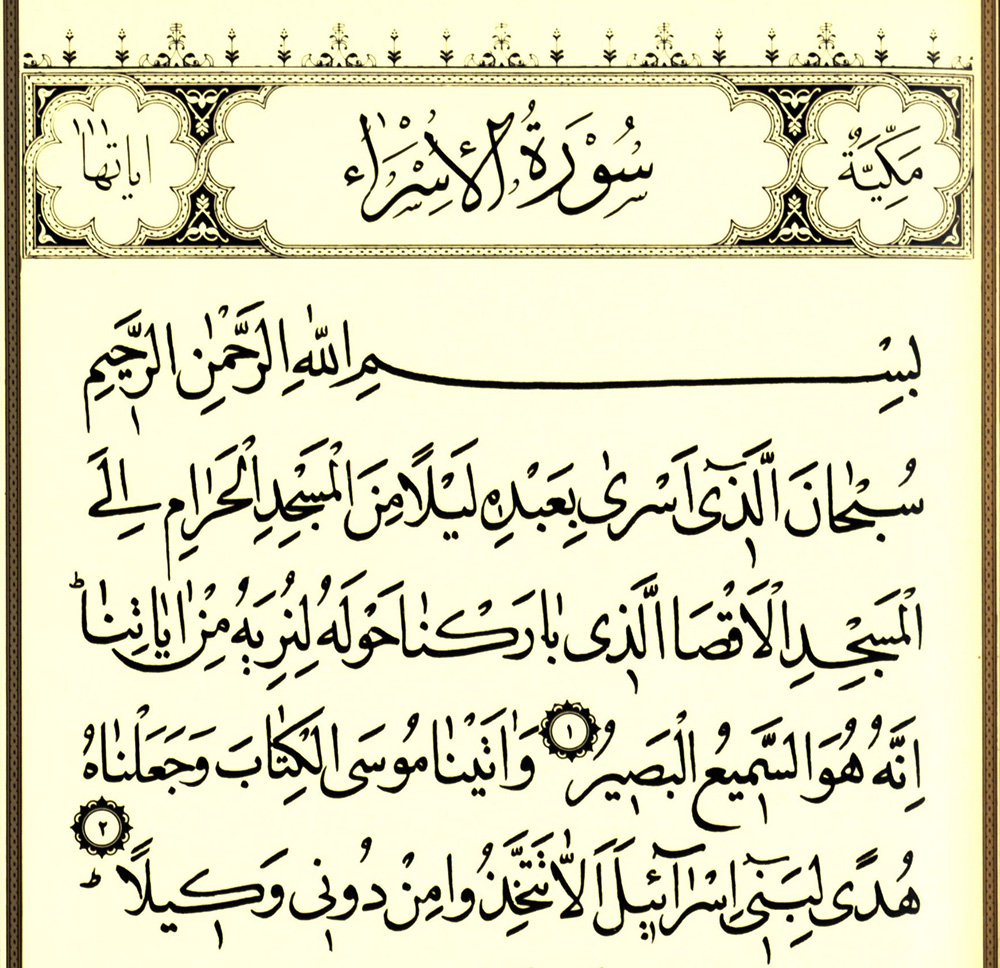 مَكِّيَّةٌ سُوْرَةُ الْاِسْرَاءِ اياتها
بِسْمِ اللّٰهِ الرَّحْمٰنِ الرَّحِيمِ
سُبْحٰانَ الَّذ۪ٓى اَسْرٰى بِعَبْدِه۪ لَيْلًا مِنَ الْمَسْجِدِ الْحَرٰامِ اِلَى
الْمَسْجِدِ الْاَقْصَا الَّذ۪ى بٰارَكْنٰا حَوْلَهُ لِنُرِيَهُ مِنْ اٰيٰاتِنٰا ط
اِنَّهُ هُوَ السَّم۪يعُ الْبَص۪يرُ ١ وَاٰتَيْنٰا مُوسَى الْكِتٰابَ وَجَعَلْنٰاهُ
هُدًى لِبَن۪ٓى اِسْرٰٓائ۪يلَ اَلّٰا تَتَّخِذُوا مِنْ دُون۪ى وَك۪يلًا ط ٢